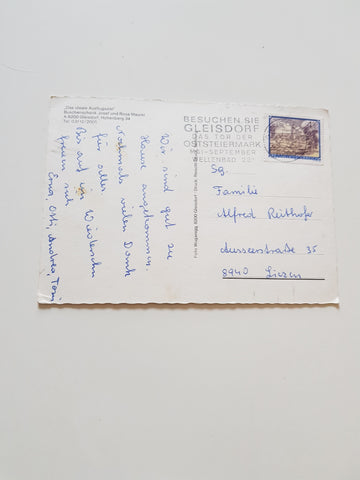 „Das ideale Ausflugsziel“
Buschenschank Josef und Rosa Maurer
A-8200 Gleisdorf, Hohenberg 34
Tel. 03112/2001
BESUCHEN SIE
GLEISDORF
DAS TOR DER
OSTSTEIERMARK
MAI-SEPTEMBER
WELLENBAD 20°
Wir sind gut zu
Hause angekommen.
Nochmals vielen Dank
für alles.
Bis auf ein Wiedersehn
freuen sich
Erna, Otti, Andrea, Toni
Sg.
Familie
Alfred Reithofer
Ausseerstraße 35
8940 Liezen